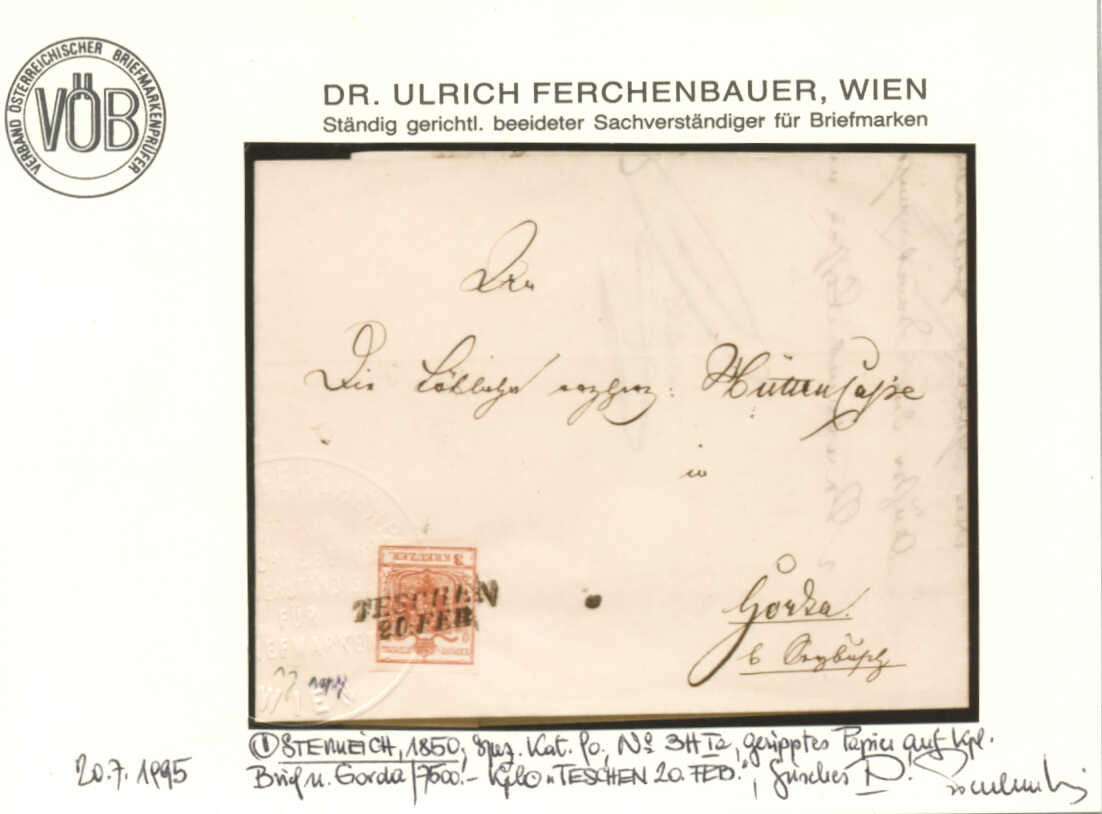 VERBAND ÖSTERREICHISCHER BRIEFMARKENPRÜFER
VÖB
DR. ULRICH FERCHENBAUER, WIEN
Ständig gerichtl. beeideter Sachverständiger für Briefmarken
An
Die Löbliche erzherz: Hüttencasse
in
Gorka
b Saybusch
3 KREUZER
TESCHEN
20. FEB.
FÜR
WIEN
20.7.1995
① ÖSTERREICH, 1850, Spez. Kat. No. Nº 3H Ia, geripptes Papier auf kpl.
Brief n. Gorda /7500.- Kplo "TESCHEN 20. FEB.",